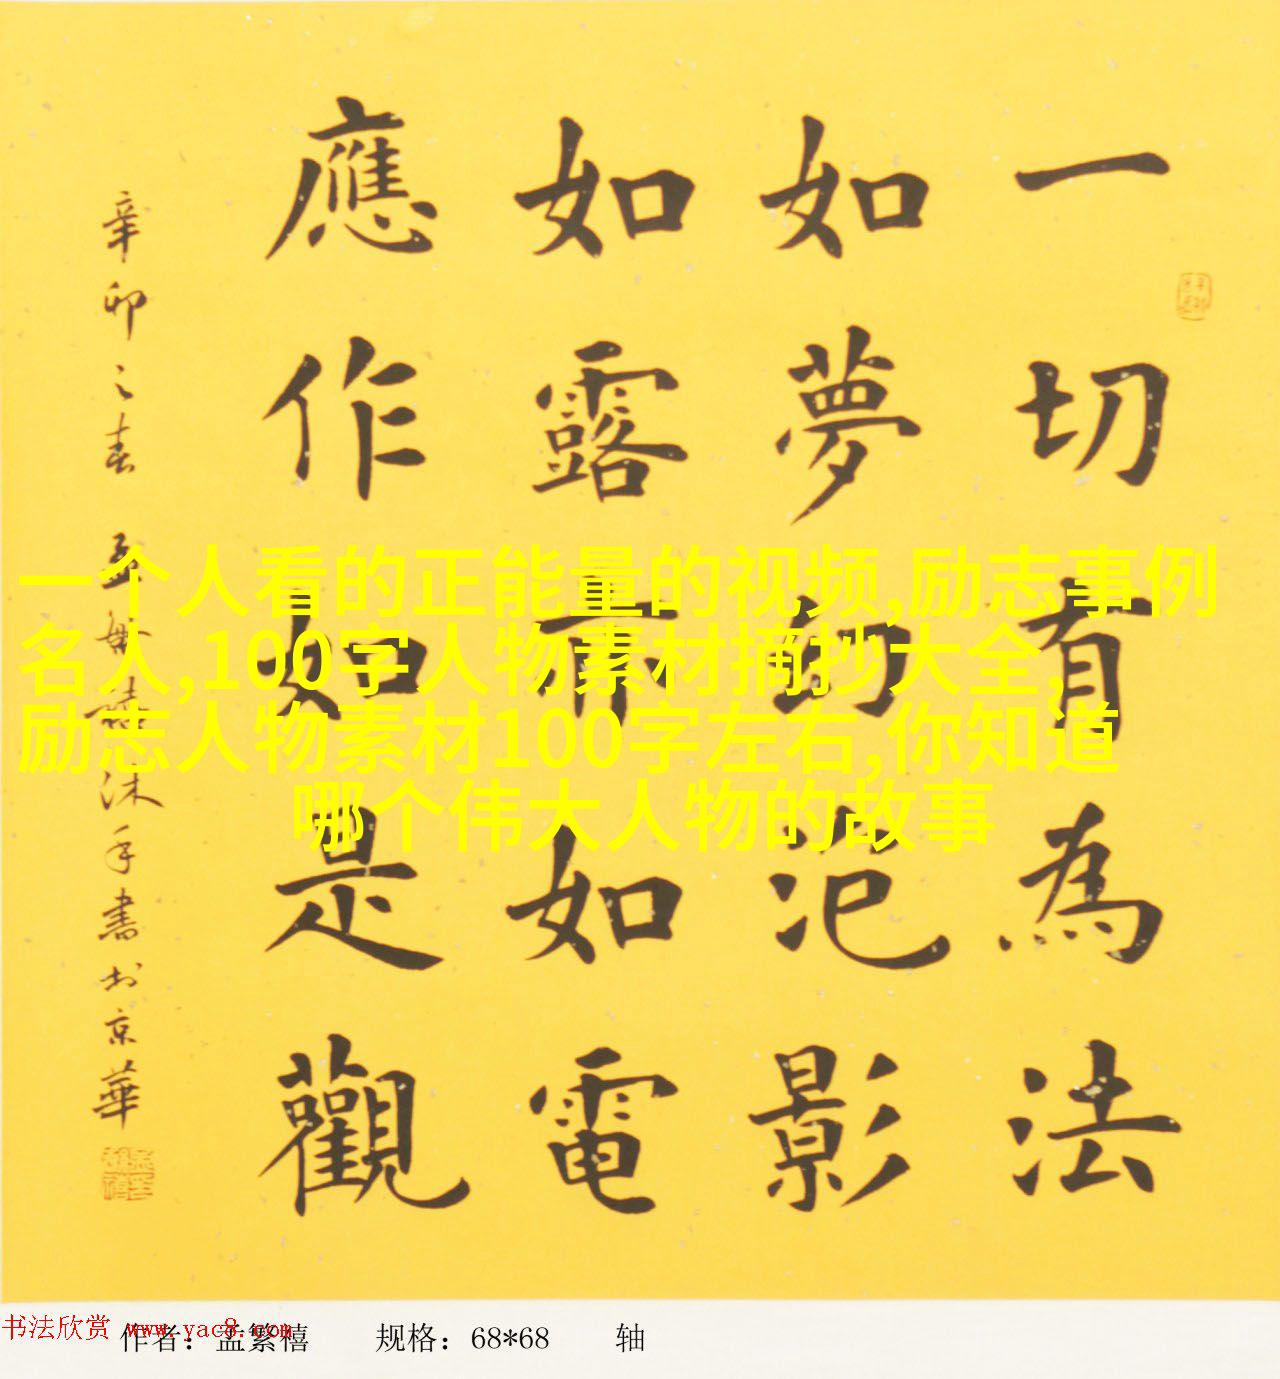 一切有為法
如夢幻泡影
如露亦如電
應作如是觀
辛卯之春 孟繁禧沐手書於京華
一个人看的正能量的视频,励志事例
名人,100字人物素材摘抄大全,
励志人物素材100字左右,你知道
哪个伟大人物的故事
书法欣赏 www.yac8.com
作者：孟繁禧 规格：68*68 轴